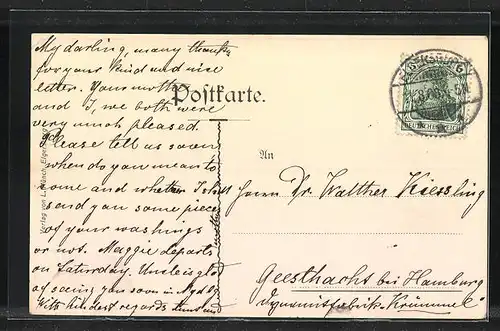 My darling, many thanks
for your kind and nice
letter. Your mother
and I, we both were
very much pleased.
Please tell us soon
when do you mean to
come and whether I shall
send you some pieces
of your washings
or not. Maggie departs
on Saturday. Uncle is glad
of seeing you soon in
With kindest regards
Postkarte.
An
Herrn Dr. Walther Kiessling
Geesthacht bei Hamburg
Dynamitfabrik Krümmel
DEUTSCHES REICH
Verlag von